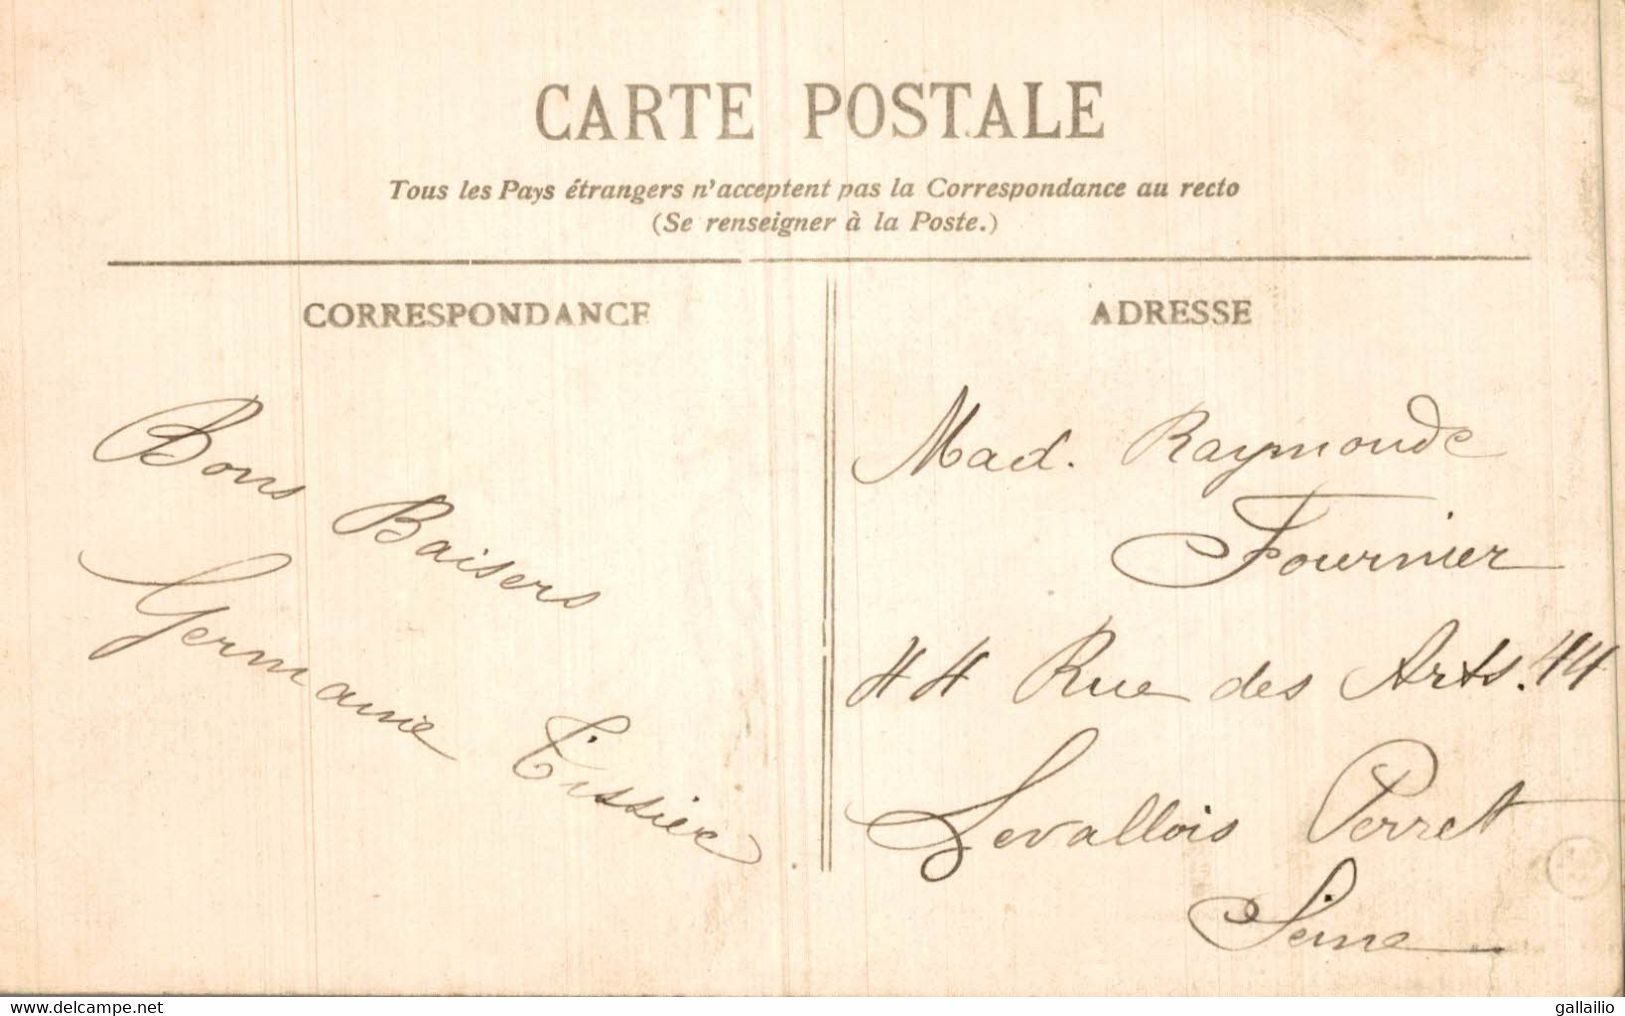 CARTE POSTALE
Tous les Pays étrangers n'acceptent pas la Correspondance au recto
(Se renseigner à la Poste.)
CORRESPONDANCE
Bons Baisers
Germaine Tissier
ADRESSE
Mad. Raymonde
Fournier
44 Rue des Arts. 44
Levallois Perret
Seine
www.delcampe.net
gallailio